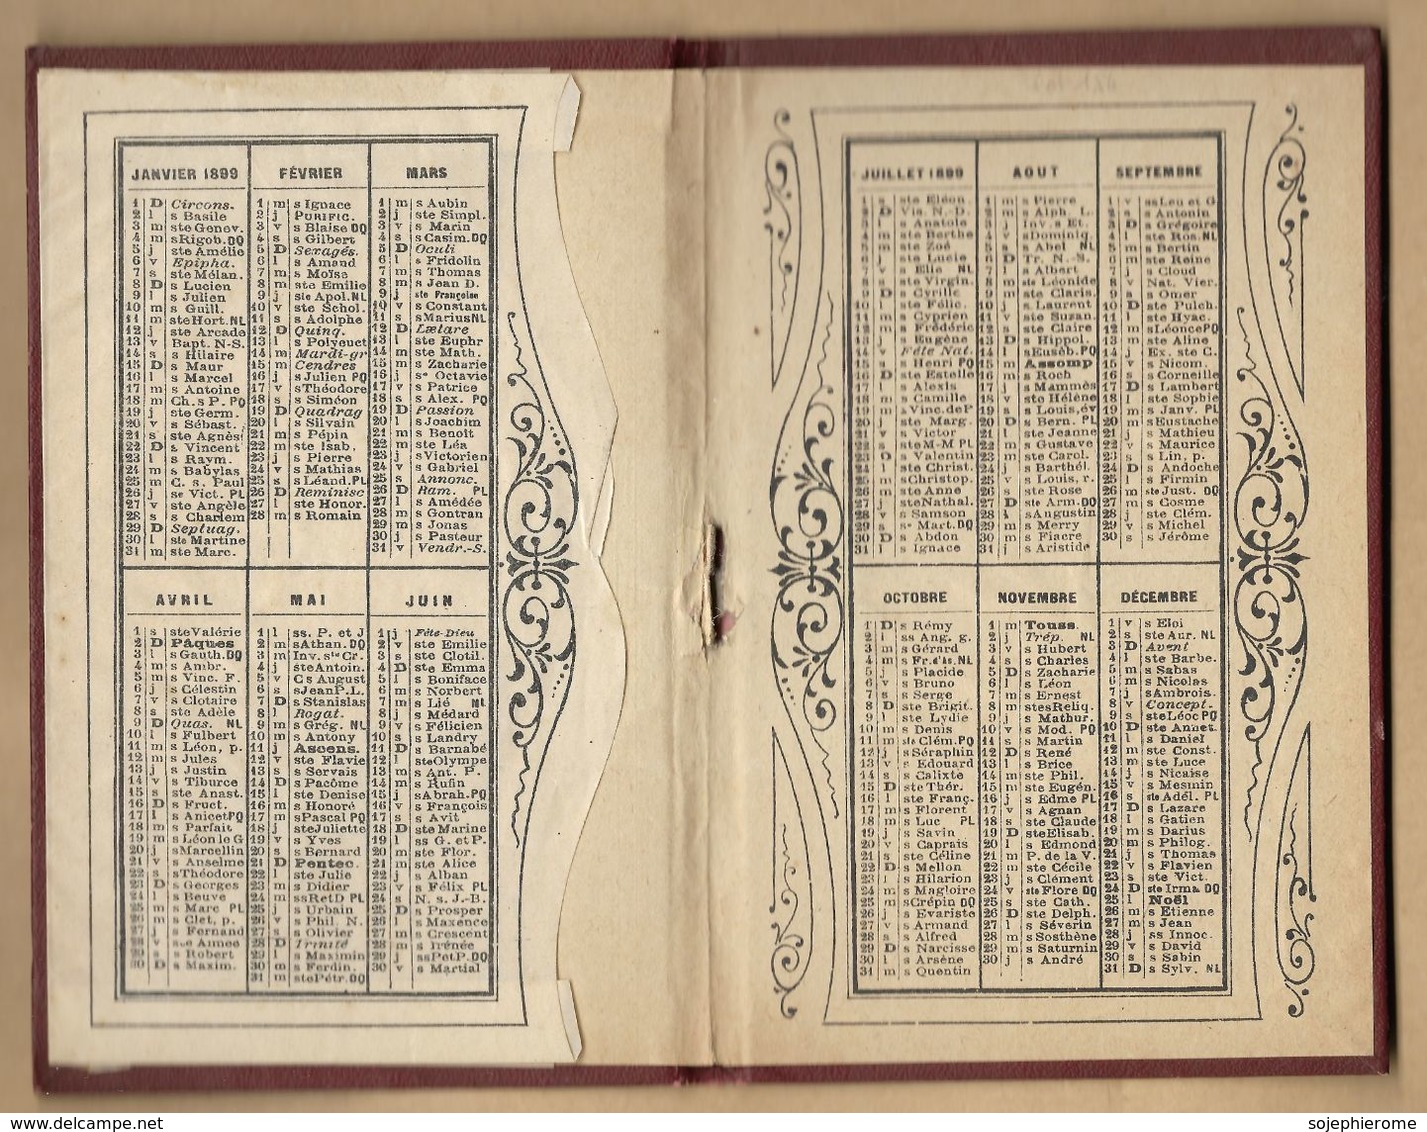 JANVIER 1899
1 D Circons.
2 l s Basile
3 m ste Genev.
4 m s Rigob. DQ
5 j ste Amélie
6 v Epipha.
7 s ste Mélan.
8 D s Lucien
9 l s Julien
10 m s Guill.
11 m ste Hort. NL
12 j ste Arcade
13 v Bapt. N-S.
14 s s Hilaire
15 D s Maur
16 l s Marcel
17 m s Antoine
18 m Ch. s P. PQ
19 j ste Germ.
20 v s Sébast.
21 s ste Agnès
22 D s Vincent
23 l s Raym.
24 m s Babylas
25 m C. s. Paul
26 j se Vict. PL
27 v ste Angèle
28 s s Charlem
29 D Septuag.
30 l ste Martine
31 m ste Marc.
FÉVRIER
1 m s Ignace
2 j PURIFIC.
3 v s Blaise DQ
4 s s Gilbert
5 D Sexagés.
6 l s Amand
7 m s Moïse
8 m ste Emilie
9 j ste Apol. NL
10 v ste Schol.
11 s s Adolphe
12 D Quinq.
13 l s Polyeuct
14 m Mardi-gr
15 m Cendres
16 j s Julien PQ
17 v s Théodore
18 s s Siméon
19 D Quadrag
20 l s Silvain
21 m s Pépin
22 m ste Isab.
23 j s Pierre
24 v s Mathias
25 s s Léand. PL
26 D Reminisc
27 l ste Honor.
28 m s Romain
MARS
1 m s Aubin
2 j ste Simpl.
3 v s Marin
4 s s Casim. DQ
5 D Oculi
6 l s Fridolin
7 m s Thomas
8 m s Jean D.
9 j ste Françoise
10 v s Constant
11 s s Marius NL
12 D Lætare
13 l ste Euphr
14 m ste Math.
15 m s Zacharie
16 j se Octavie
17 v s Patrice
18 s s Alex. PQ
19 D Passion
20 l s Joachim
21 m s Benoît
22 m ste Léa
23 j s Victorien
24 v s Gabriel
25 s Annonc.
26 D Ram. PL
27 l s Amédée
28 m s Gontran
29 m s Jonas
30 j s Pasteur
31 v Vendr.-S.
AVRIL
1 s ste Valérie
2 D Pâques
3 l s Gauth. DQ
4 m s Ambr.
5 m s Vinc. F.
6 j s Célestin
7 v s Clotaire
8 s ste Adèle
9 D Quas. NL
10 l s Fulbert
11 m s Léon, p.
12 m s Jules
13 j s Justin
14 v s Tiburce
15 s ste Anast.
16 D s Fruct.
17 l s Anicet PQ
18 m s Parfait
19 m s Léon le G
20 j s Marcellin
21 v s Anselme
22 s s Théodore
23 D s Georges
24 l s Beuve
25 m s Marc PL
26 m s Clet, p.
27 j s Fernand
28 v ste Aimée
29 s s Robert
30 D s Maxim.
MAI
1 l ss. P. et J
2 m s Athan. DQ
3 m Inv. ste Cr.
4 j ste Antoin.
5 v C s August
6 s s Jean P. L.
7 D s Stanislas
8 l Rogat.
9 m s Grég. NL
10 m s Antony
11 j Ascens.
12 v ste Flavie
13 s s Servais
14 D s Pacôme
15 l ste Denise
16 m s Honoré
17 m s Pascal PQ
18 j ste Juliette
19 v s Yves
20 s s Bernard
21 D Pentec.
22 l ste Julie
23 m s Didier
24 m ss R et D PL
25 j s Urbain
26 v s Phil. N.
27 s s Olivier
28 D Trinité
29 l s Maximin
30 m s Ferdin.
31 m ste Pétr. DQ
JUIN
1 j Fête-Dieu
2 v ste Emilie
3 s ste Clotil.
4 D ste Emma
5 l s Boniface
6 m s Norbert
7 m s Lié NL
8 j s Médard
9 v s Félicien
10 s s Landry
11 D s Barnabé
12 l ste Olympe
13 m s Ant. P.
14 m s Rufin
15 j s Abrah. PQ
16 v s François
17 s s Avit
18 D ste Marine
19 l ss G. et P.
20 m ste Flor.
21 m ste Alice
22 j s Alban
23 v s Félix PL
24 s N. s. J.-B.
25 D s Prosper
26 l s Maxence
27 m s Crescent
28 m s Irénée
29 j ss P et P. DQ
30 v s Martial
JUILLET 1899
1 s ste Eléon.
2 D Vis. N.-D.
3 l s Anatole
4 m ste Berthe
5 m ste Zoé
6 j ste Lucie
7 v s Elie NL
8 s ste Virgin.
9 D s Cyrille
10 l ste Félic.
11 m s Cyprien
12 m s Frédéric
13 j s Eugène
14 v Fête Nat.
15 s s Henri PQ
16 D ste Estelle
17 l s Alexis
18 m s Camille
19 m s Vinc. de P
20 j ste Marg.
21 v s Victor
22 s ste M-M PL
23 D s Valentin
24 l ste Christ.
25 m s Christop.
26 m ste Anne
27 j ste Nathal.
28 v s Samson
29 s se Mart. DQ
30 D s Abdon
31 l s Ignace
AOUT
1 m s Pierre
2 m s Alph. L.
3 j Inv. s Et.
4 v s Dominiq.
5 s s Abel NL
6 D Tr. N.-S.
7 l s Albert
8 m ste Léonide
9 m ste Claris.
10 j s Laurent
11 v ste Suzan.
12 s ste Claire
13 D s Hippol.
14 l s Euséb. PQ
15 m Assomp
16 m s Roch
17 j s Mammès
18 v ste Hélène
19 s s Louis, év
20 D s Bern. PL
21 l ste Jeanne
22 m s Gustave
23 m ste Carol.
24 j s Barthél.
25 v s Louis, r.
26 s ste Rose
27 D ste Arm. DQ
28 l s Augustin
29 m s Merry
30 m s Fiacre
31 j s Aristide
SEPTEMBRE
1 v ss Leu et G
2 s s Antonin
3 D s Grégoire
4 l ste Ros. NL
5 m s Bertin
6 m ste Reine
7 j s Cloud
8 v Nat. Vier.
9 s s Omer
10 D ste Pulch.
11 l ste Hyac.
12 m s Léonce PQ
13 m ste Aline
14 j Ex. ste C.
15 v s Nicom.
16 s s Corneille
17 D s Lambert
18 l ste Sophie
19 m s Janv. PL
20 m s Eustache
21 j s Mathieu
22 v s Maurice
23 s s Lin, p.
24 D s Andoche
25 l s Firmin
26 m ste Just. DQ
27 m s Cosme
28 j ste Clém.
29 v s Michel
30 s s Jérôme
OCTOBRE
1 D s Rémy
2 l ss Ang. g.
3 m s Gérard
4 m s Fr. d'As. NL
5 j s Placide
6 v s Bruno
7 s s Serge
8 D ste Brigit.
9 l ste Lydie
10 m s Denis
11 m ste Clém. PQ
12 j s Séraphin
13 v s Edouard
14 s s Calixte
15 D ste Thér.
16 l ste Franç.
17 m s Florent
18 m s Luc PL
19 j s Savin
20 v s Caprais
21 s ste Céline
22 D s Mellon
23 l s Hilarion
24 m s Magloire
25 m s Crépin DQ
26 j s Evariste
27 v s Armand
28 s s Alfred
29 D s Narcisse
30 l s Arsène
31 m s Quentin
NOVEMBRE
1 m Touss.
2 j Trép. NL
3 v s Hubert
4 s s Charles
5 D s Zacharie
6 l s Léon
7 m s Ernest
8 m stes Reliq.
9 j s Mathur.
10 v s Mod. PQ
11 s s Martin
12 D s René
13 l s Brice
14 m ste Phil.
15 m ste Eugén.
16 j s Edme PL
17 v s Agnan
18 s ste Claude
19 D ste Elisab.
20 l s Edmond
21 m P. de la V.
22 m ste Cécile
23 j s Clément
24 v ste Flore DQ
25 s ste Cath.
26 D ste Delph.
27 l s Séverin
28 m s Sosthène
29 m s Saturnin
30 j s André
DÉCEMBRE
1 v s Eloi
2 s ste Aur. NL
3 D Avent
4 l ste Barbe.
5 m s Sabas
6 m s Nicolas
7 j s Ambrois.
8 v Concept.
9 s ste Léoc PQ
10 D ste Annet.
11 l s Daniel
12 m ste Const.
13 m ste Luce
14 j s Nicaise
15 v s Mesmin
16 s ste Adél. PL
17 D s Lazare
18 l s Gatien
19 m s Darius
20 m s Philog.
21 j s Thomas
22 v s Flavien
23 s ste Vict.
24 D ste Irma DQ
25 l Noël
26 m s Etienne
27 m s Jean
28 j ss Innoc.
29 v s David
30 s s Sabin
31 D s Sylv. NL
www.delcampe.net
sojephierome